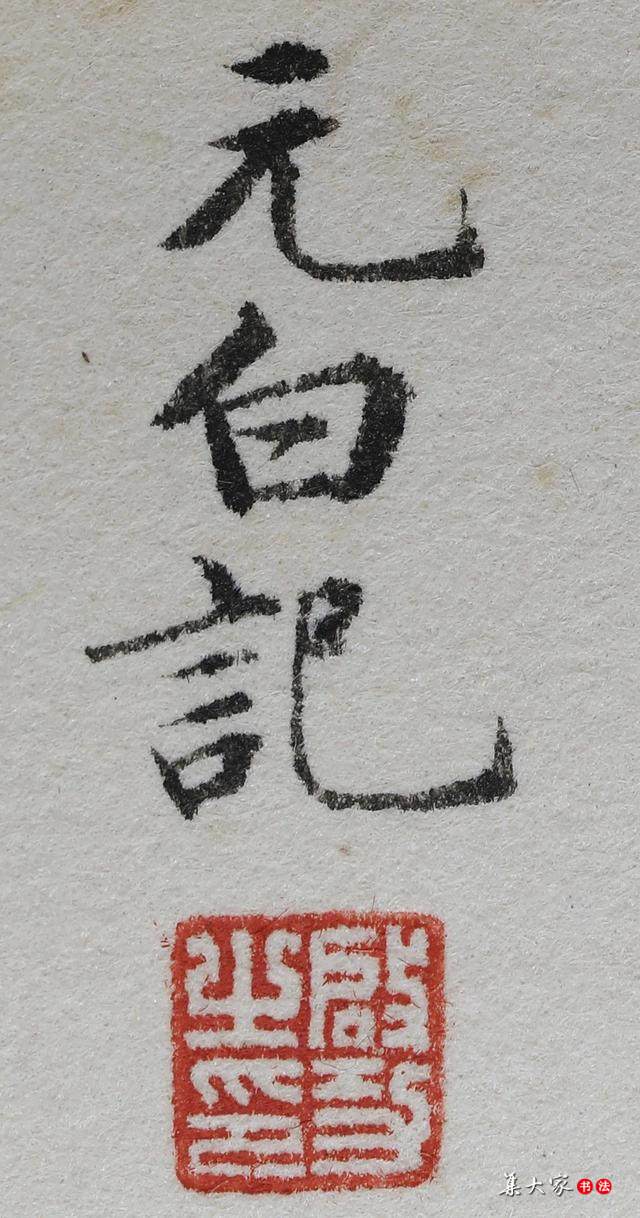 元白記
啟功之印
集大家書法